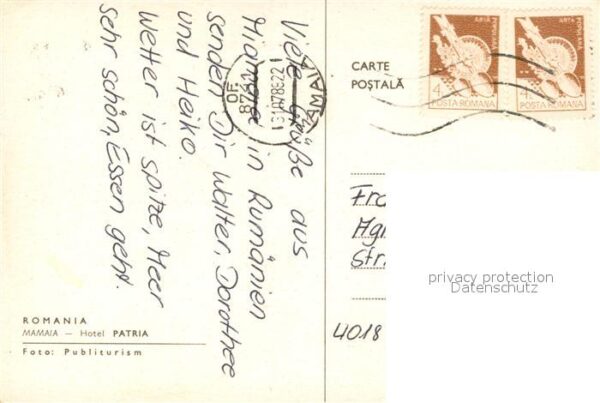 Viele Grüße aus
Mamaia in Rumänien
senden Dir Walter, Dorothee
und Heiko.
Wetter ist spitze, Meer
sehr schön, Essen geht.
ROMANIA
MAMAIA — Hotel PATRIA
Foto: Publiturism
CARTE
POȘTALĂ
ARTA
POPULARĂ
4
POSTA ROMANA
ARTA
POPULARĂ
4
POSTA ROMANA
MAMAIA
OF.
8727
Str
4018
privacy protection
Datenschutz